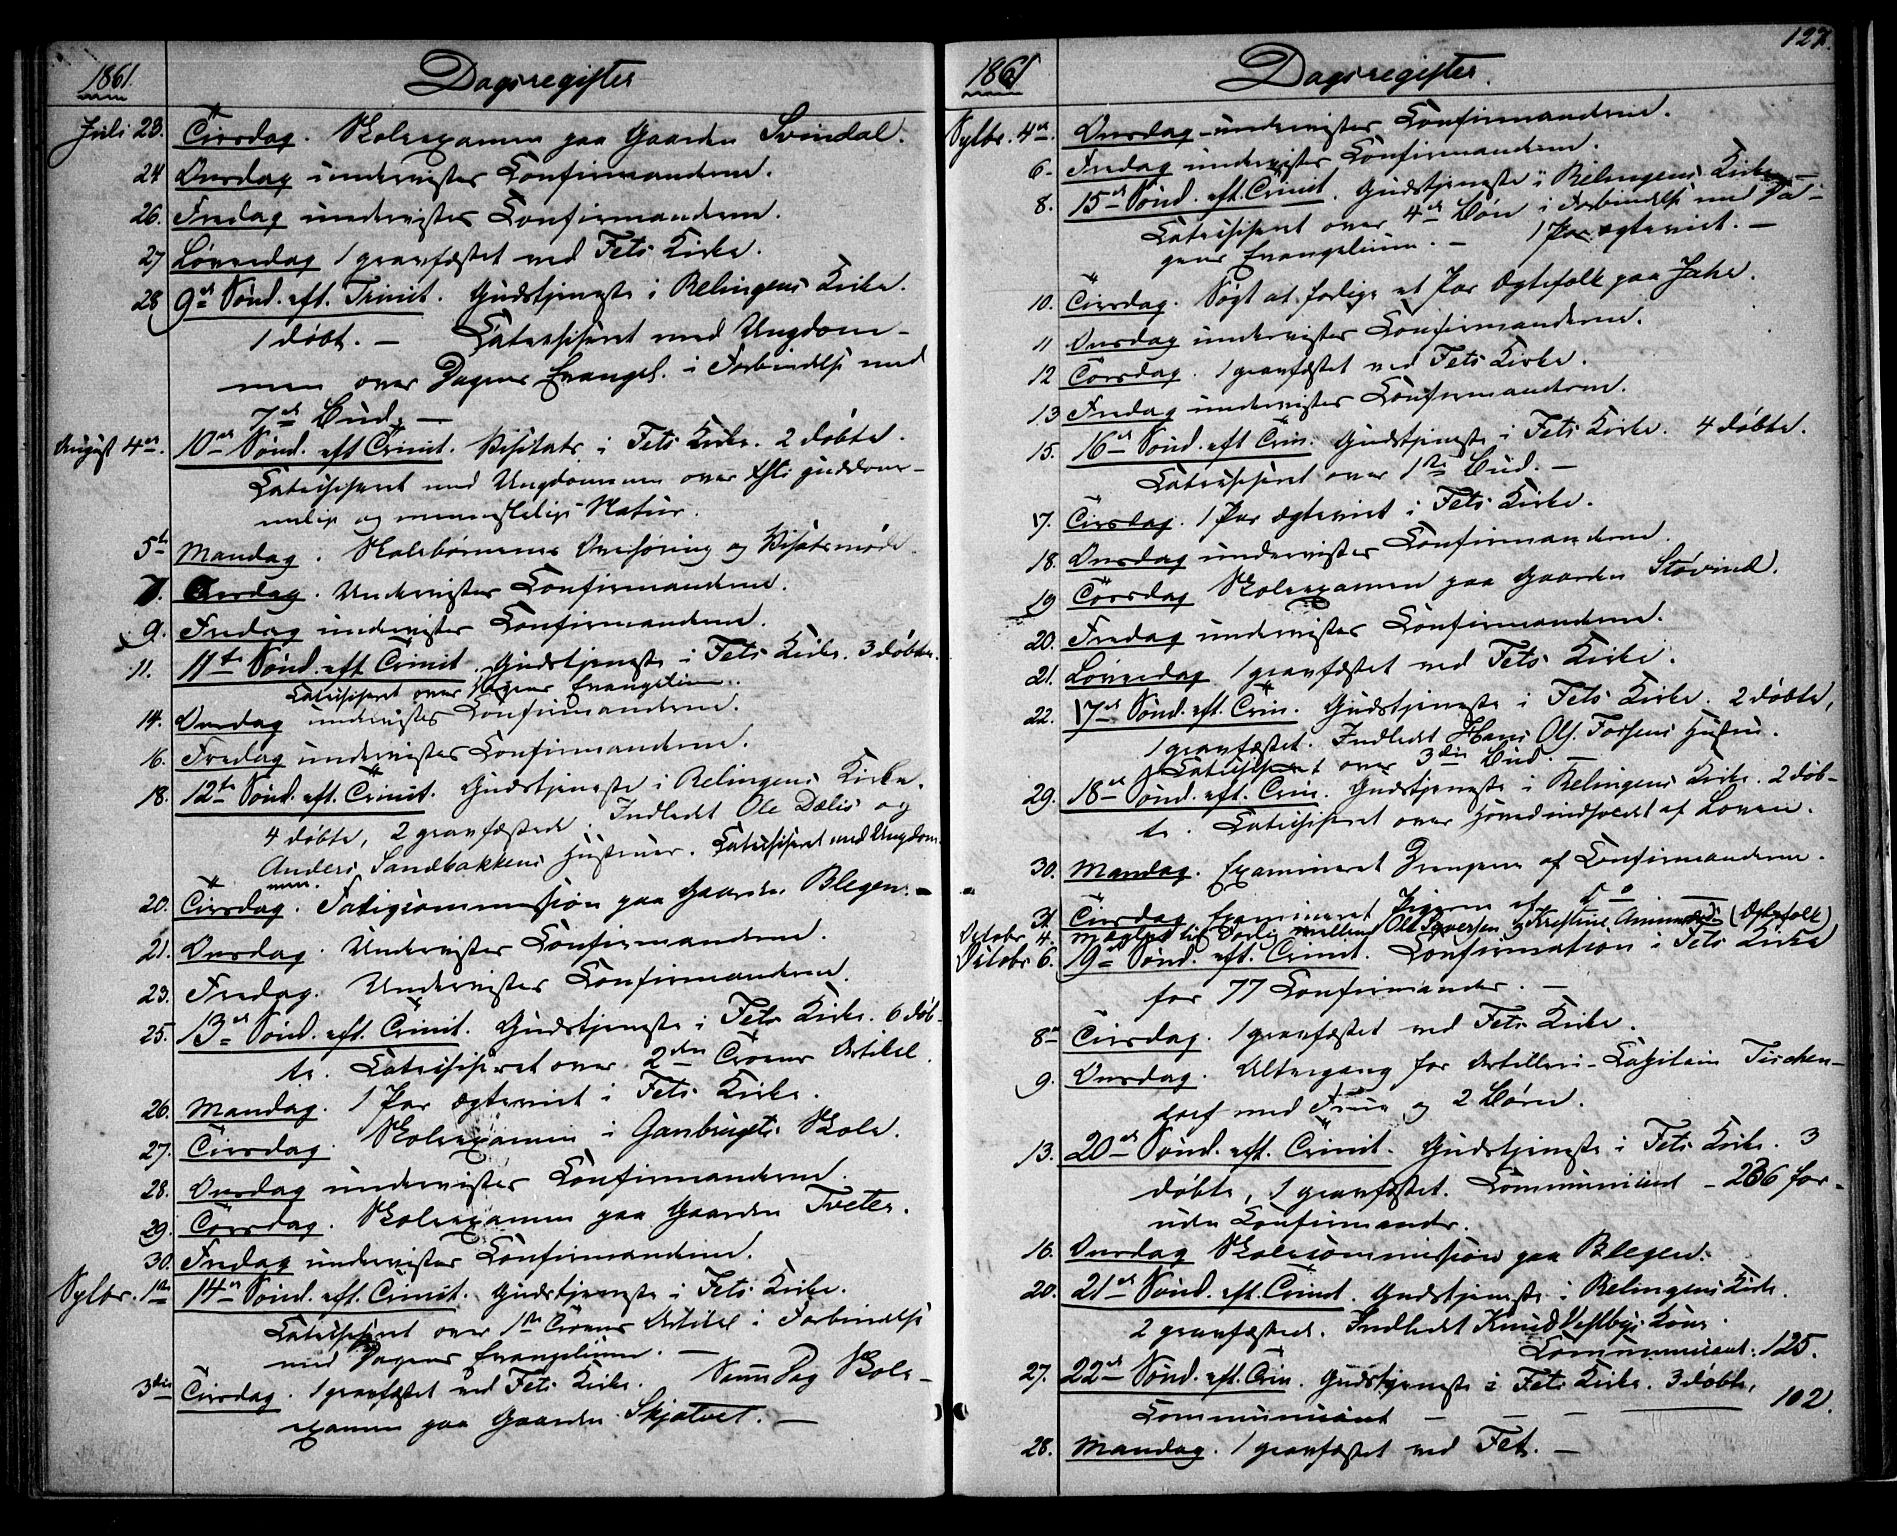 1861. Dagsregister
Juli 23. Tirsdag. Skoleexamen paa Gaarden Svindal.
24 Onsdag undervistes Confirmanderne.
26. Fredag undervistes Confirmanderne.
27 Løverdag 1 gravfæstet ved Fets Kirke.
28 9de Sønd. eft. Trinit. Gudstjeneste i Relingens Kirke.
1 døbt. — Catechiseret med Ungdom-
men over Dagens Evangel. i Forbindelse med
7de Bud. —
August 4de. 10de Sønd. eft Trinit. Visitats i Fets Kirke. 2 døbte.
Catechiseret med Ungdommen over Chti guddom-
melige og menneskelige Natur.
5te Mandag. Skolebørnenes Overhøring og Visatsmøde.
7. Onsdag. Undervistes Confirmanderne.
9. Fredag undervistes Confirmanderne.
11. 11te Sønd. eft Trinit. Gudstjeneste i Fets Kirke. 3 døbte.
Catechiseret over Dagens Evangelium.
14. Onsdag undervistes Confirmanderne.
16. Fredag undervistes Confirmanderne.
18. 12te Sønd. eft. Trinit. Gudstjeneste i Relingens Kirke.
4 døbte, 2 gravfæstede. Indledt Ole Dælis og
Anders Sandbakkens Hustruer. Catechiseret med Ungdom-
men.
20. Tirsdag. Fattigcommission paa Gaarden Blegen. —
21. Onsdag. Undervistes Confirmanderne.
23. Fredag. Undervistes Confirmanderne.
25. 13de Sønd. eft. Trinit. Gudstjeneste i Fets Kirke. 6 døb-
te. Catechiseret over 2den Troens Artikel.
26. Mandag. 1 Par ægteviet i Fets Kirke.
27. Tirsdag. Skoleexamen i Ganbrugets Skole.
28. Onsdag undervistes Confirmanderne.
29. Torsdag. Skoleexamen paa Gaarden Tveter.
30. Fredag undervistes Confirmanderne.
Sptbr. 1ste 14de Sønd. eft. Trinit. Gudstjeneste i Fets Kirke.
Catechiseret over 1ste Troens Artikel i Forbindelse
med Dagens Evangelium. —
3die Tirsdag. 1 gravfæstet ved Fets Kirke. Samme Dag Skole-
examen paa Gaarden Skjatvet. —
1861 Dagsregister. 127.
Sptbr. 4de. Onsdag undervistes Confirmanderne.
6. Fredag undervistes Confirmanderne.
8. 15de Sønd. eft. Trinit. Gudstjeneste i Relingens Kirke —
Catechiseret over 4de Bøn i Forbindelse med Da-
gens Evangelium. — 1 Par ægteviet. —
10. Tirsdag. Søgt at forlige et Par Ægtefolk paa Jahr.
11 Onsdag undervistes Confirmanderne.
12 Torsdag. 1 gravfæstet ved Fets Kirke.
13. Fredag undervistes Confirmanderne.
15. 16de Sønd. eft Trin. Gudstjeneste i Fets Kirke. 4 døbte.
Catechiseret over 1ste Bud. —
17. Tirsdag. 1 Par ægteviet i Fets Kirke.
18. Onsdag undervistes Confirmanderne.
19 Torsdag Skoleexamen paa Gaarden Støvind.
20. Fredag undervistes Confirmanderne.
21. Løverdag 1 gravfæstet ved Fets Kirke.
22. 17de Sønd. eft. Trin. Gudstjeneste i Fets Kirke. 2 døbte,
1 gravfæstet. Indledt Hans Ols. Fossens Hustru.
Catechiseret over 3die Bud. —
29. 18de Sønd. eft. Trin. Gudstjeneste i Relingens Kirke. 2 døb-
te. Catechiseret over Hovedindholdet af Loven.
30. Mandag. Examineret Drengene af Confirmanderne.
Tirsdag Examineret Pigerne af do
Octobr. 4. Mæglet til Forlig mellem Ole Syversen og Kristine Ammundsd. (Ægtefolk)
October 6. 19de Sønd. eft. Trinit. Confirmation i Fets Kirke
for 77 Confirmander. —
8de Tirsdag. 1 gravfæstet ved Fets Kirke.
9. Onsdag. Altergang for Artilleri-Capitain Tischen-
dorf med Frue og 2 Børn.
13. 20de Sønd. eft. Trinit. Gudstjeneste i Fets Kirke. 3
døbte, 1 gravfæstet. Communicant — 236 for-
uden Confirmander.
16. Onsdag Skolecommission paa Blegen.
20. 21de Sønd. eft. Trinit. Gudstjeneste i Relingens Kirke.
2 gravfæstede. Indledt Knud Vestbys Kone.
Communicant: 125.
27. 22de Sønd. eft. Trin. Gudstjeneste i Fets Kirke. 3 døbte,
Communicant — — — 102.
28. Mandag. 1 gravfæstet ved Fet. —